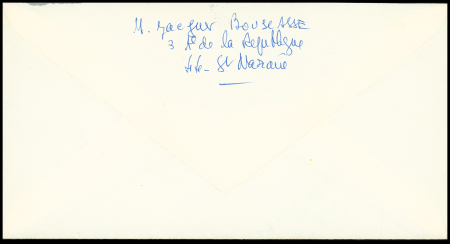 M. Jacques BOUSCASSE
3 Pl de la République
44 - St Nazaire